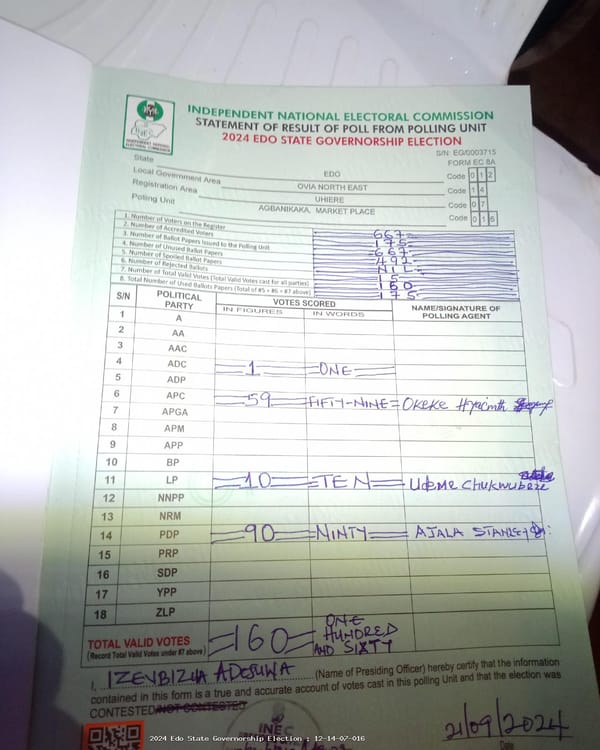 INDEPENDENT NATIONAL ELECTORAL COMMISSION
STATEMENT OF RESULT OF POLL FROM POLLING UNIT
2024 EDO STATE GOVERNORSHIP ELECTION
S/N: EG/0003715
FORM EC 8A
State EDO Code 0 1 2
Local Government Area OVIA NORTH EAST Code 1 4
Registration Area UHIERE Code 0 7
Polling Unit AGBANIKAKA, MARKET PLACE Code 0 1 6
1. Number of Voters on the Register 667
2. Number of Accredited Voters 175
3. Number of Ballot Papers Issued to the Polling Unit 667
4. Number of Unused Ballot Papers 492
5. Number of Spoiled Ballot Papers NIL
6. Number of Rejected Ballots 15
7. Number of Total Valid Votes (Total Valid Votes cast for all parties) 160
8. Total Number of Used Ballots Papers (Total of #5 + #6 + #7 above) 175
S/N POLITICAL PARTY VOTES SCORED NAME/SIGNATURE OF POLLING AGENT
IN FIGURES IN WORDS
1 A
2 AA
3 AAC
4 ADC 1 ONE
5 ADP
6 APC 59 FIFTY-NINE OKEKE Hyacinth
7 APGA
8 APM
9 APP
10 BP
11 LP 10 TEN UDEME CHUKWUBEZE
12 NNPP
13 NRM
14 PDP 90 NINTY AJALA STANLEY
15 PRP
16 SDP
17 YPP
18 ZLP
TOTAL VALID VOTES 160 ONE HUNDRED AND SIXTY
(Record Total Valid Votes under #7 above)
I, IZEVBIZUA ADESUWA (Name of Presiding Officer) hereby certify that the information
contained in this form is a true and accurate account of votes cast in this polling Unit and that the election was
CONTESTED/NOT CONTESTED
INEC
21/09/2024
2024 Edo State Governorship Election : 12-14-07-016